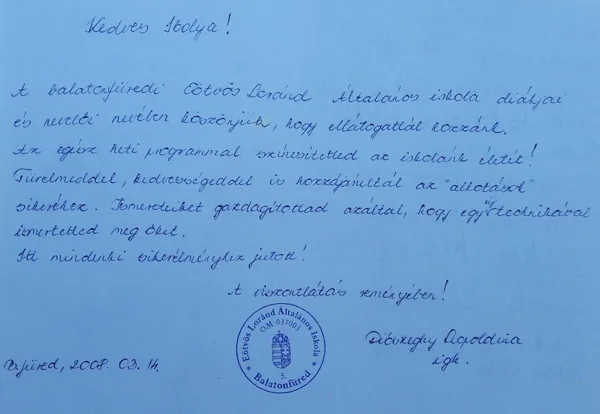 Kedves Ibolya!
A balatonfüredi Eötvös Loránd Általános iskola diákjai
és nevelői nevében köszönjük, hogy ellátogattál hozzánk.
Az egész heti programmal színesítetted az iskolánk életét!
Türelmeddel, kedvességeddel is hozzájárultál az "alkotások"
sikeréhez. Ismereteiket gazdagítottad azáltal, hogy egy új technikával
ismertetted meg őket.
Itt mindenki sikerélményhez jutott!
A viszontlátás reményében!
Eötvös Loránd Általános Iskola
OM: 037003
5.
Balatonfüred
igh.
B.füred, 2008. 03. 14.